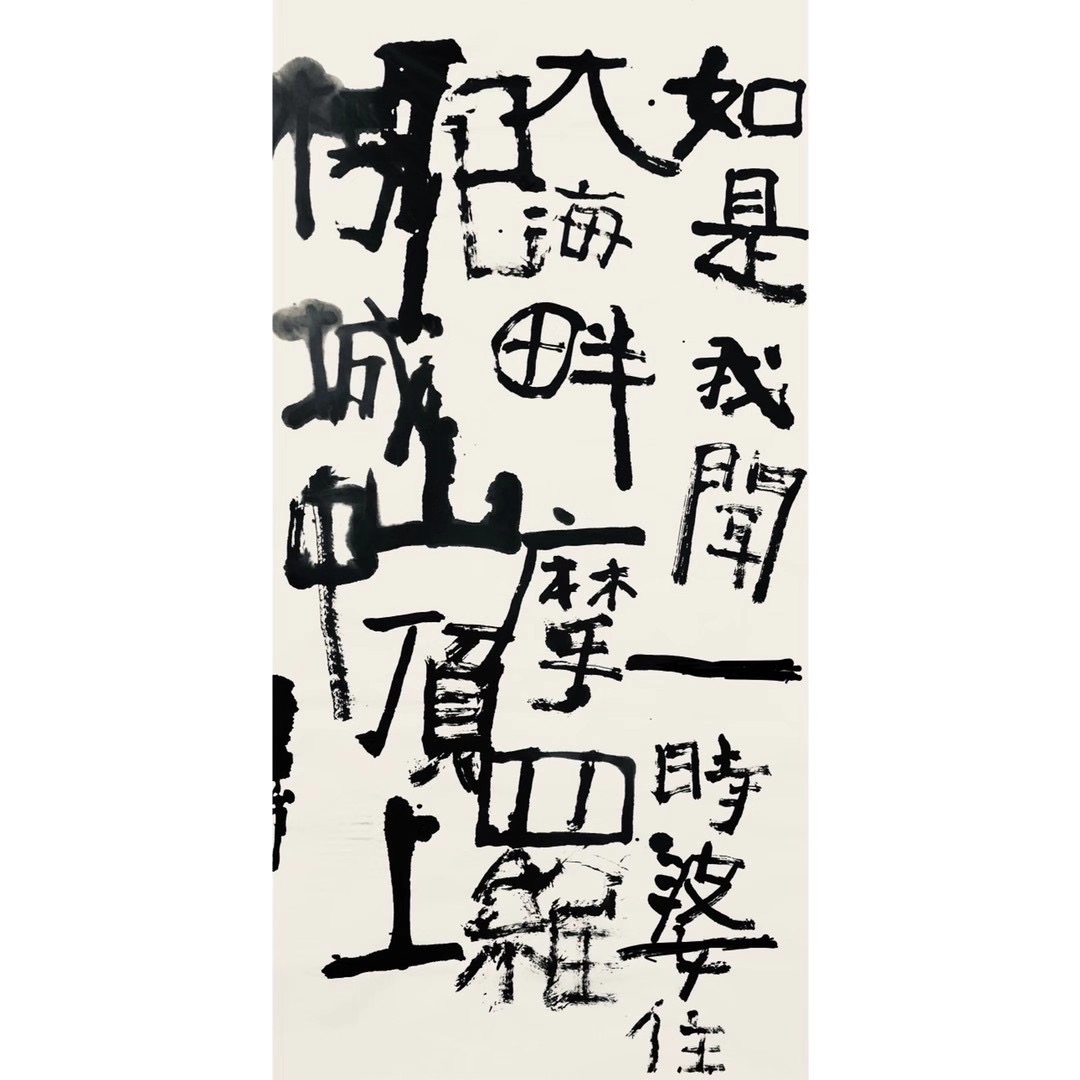 如是我聞一時婆住
大海畔摩羅
耶山頂上
伽城中